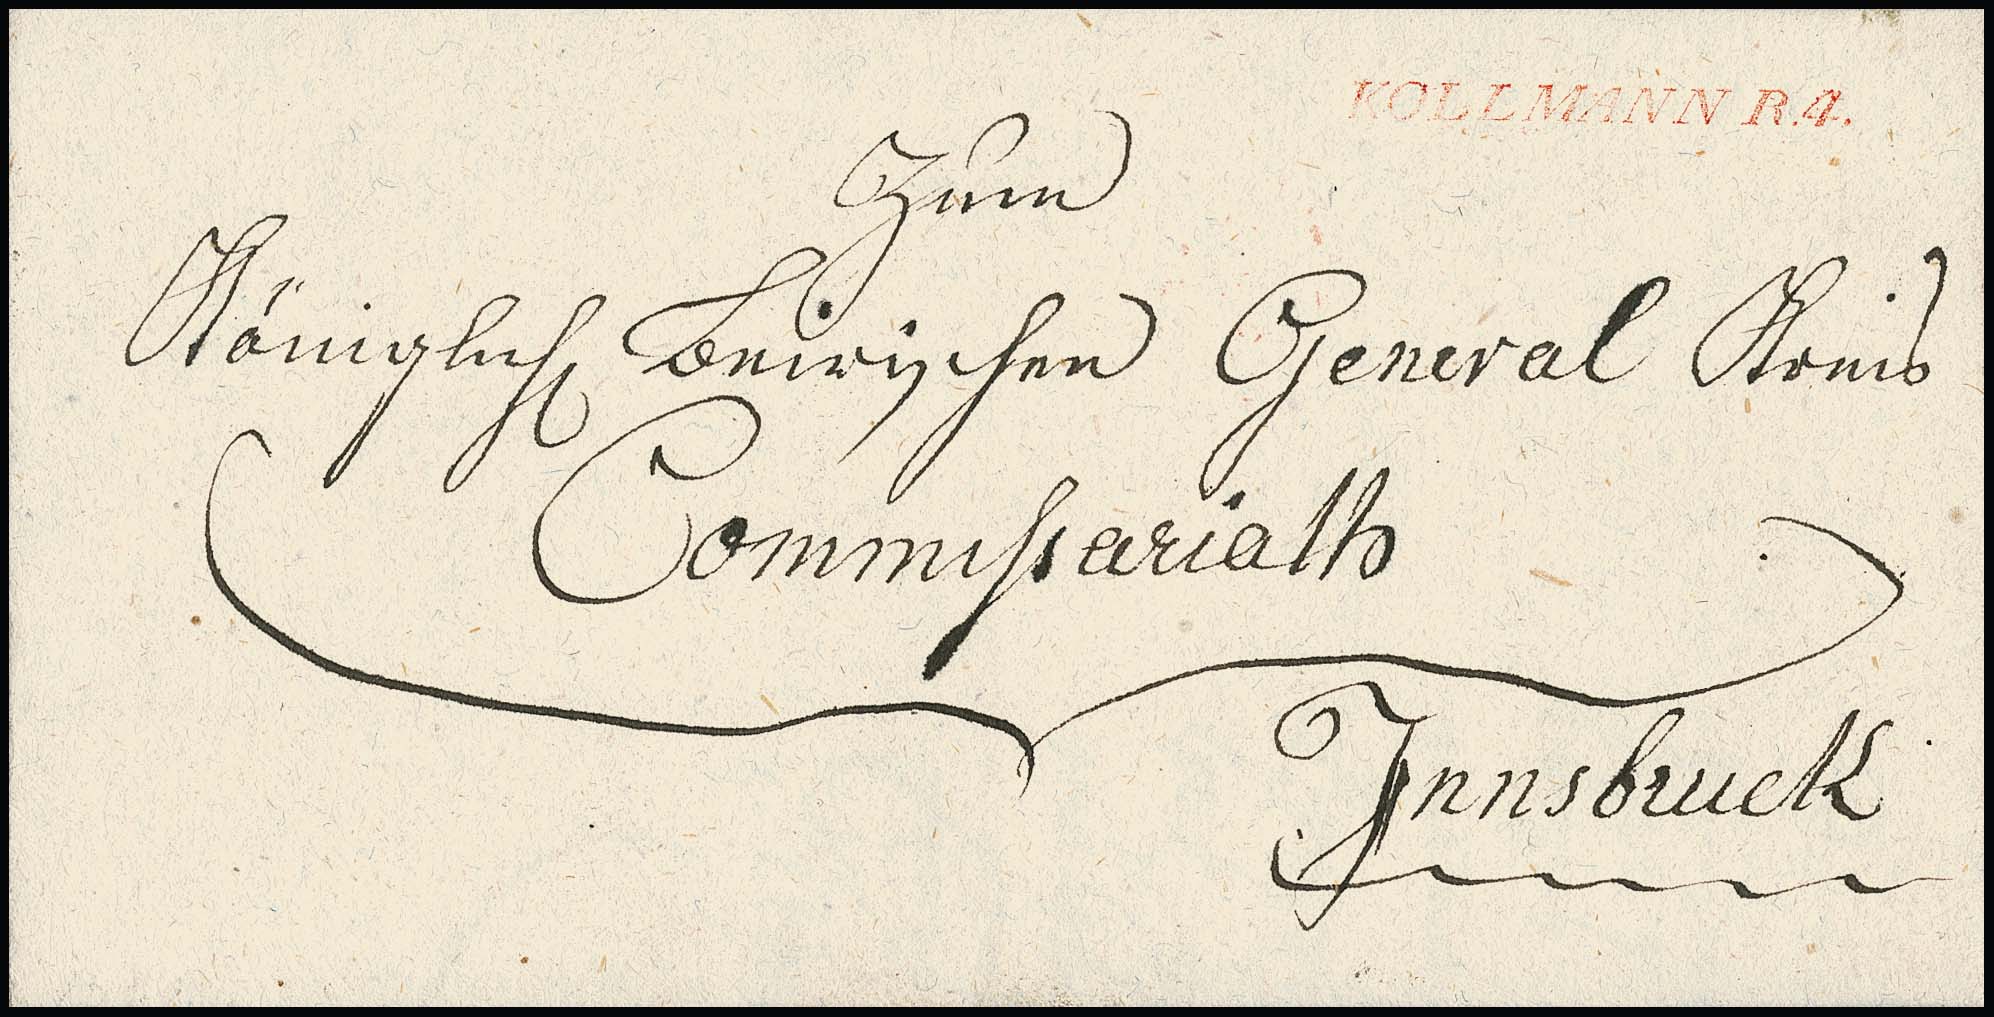 KOLLMANN R.4.
Zum
Königlich Beirischen General Kreis
Commissariath
Innsbruck